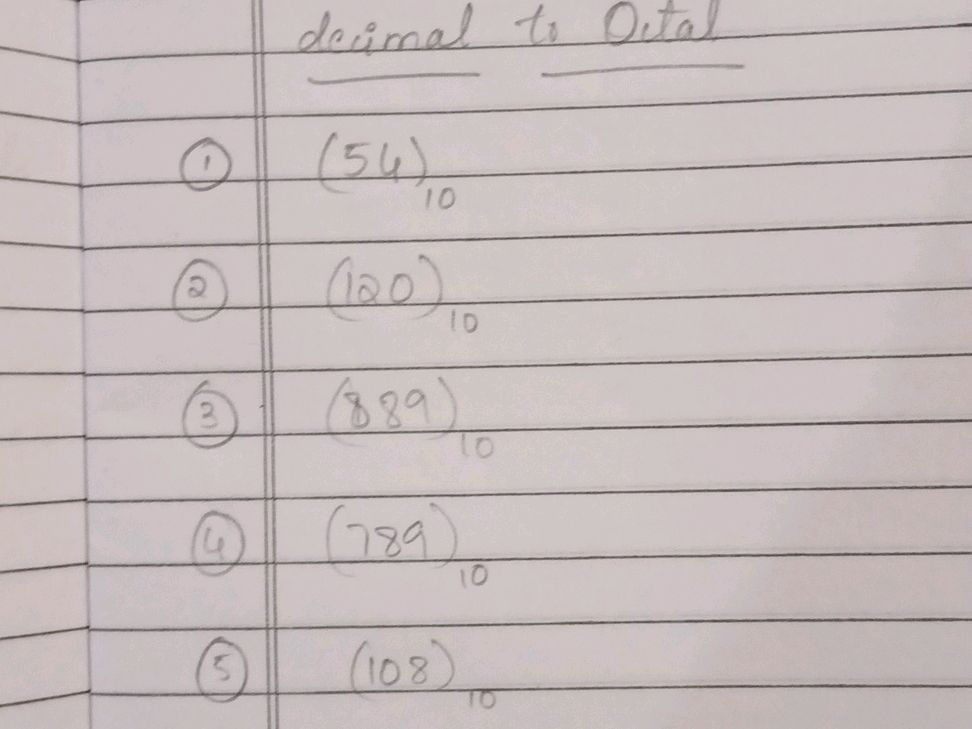 decimal to Octal
① (54)10
② (120)10
③ (889)10
④ (789)10
⑤ (108)10